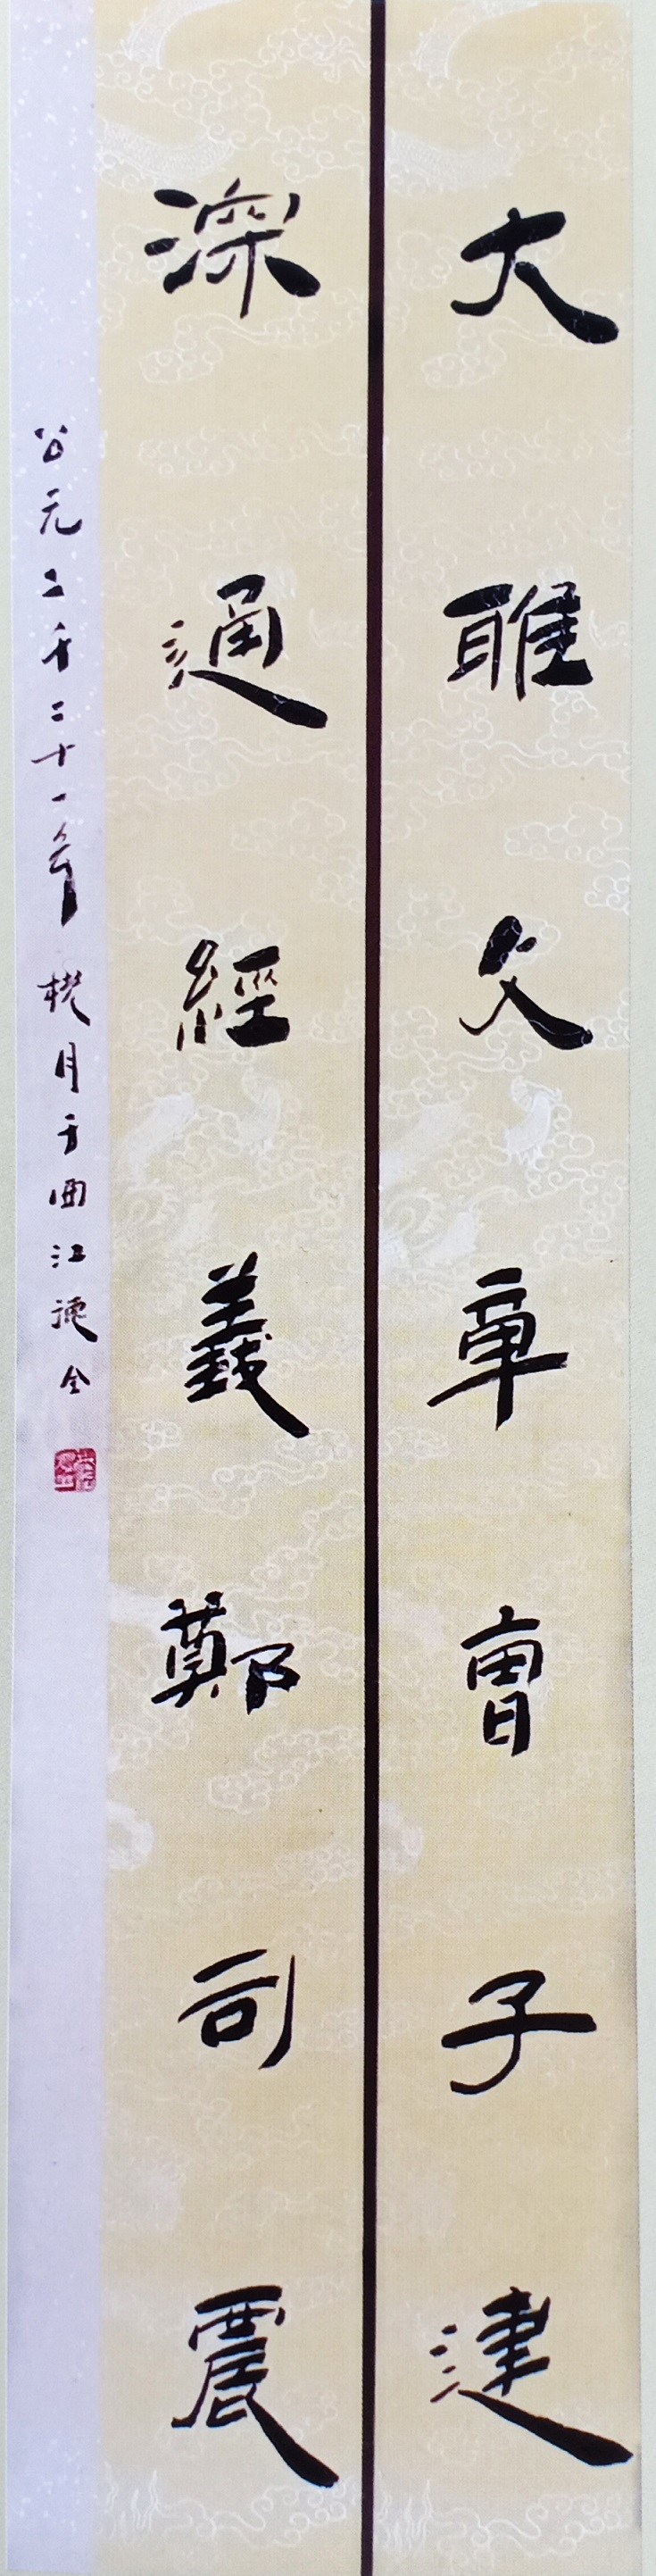 大雅文章曹子建
深通經義鄭司農
公元二千二十一年桃月于曲江德全